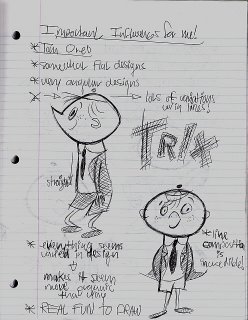 Important Influences for me!
* Tom Oreb
* somewhat flat designs
* very angular designs
* → lots of variations
using lines!
TRIX
straight
* everything seems
varied in design
↓
makes it seem
more organic
that way
* line
composition
is
incredible!
* REAL FUN TO DRAW